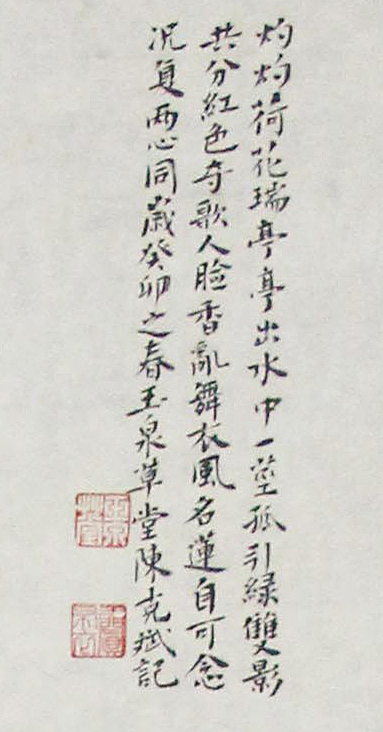 灼灼荷花瑞亭亭出水中一莖孤引綠雙影
共分紅色奪歌人臉香亂舞衣風名蓮自可念
況復兩心同歲癸卯之春玉泉草堂陳克斌記